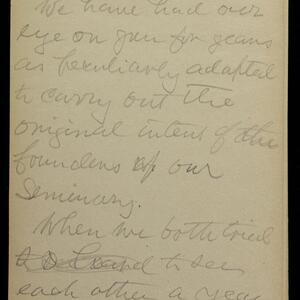 We have had our
eye on you for years
as peculiarly adapted
to carry out the
original intent of the
founders of our
Seminary.
When we both tried
to see
each other a year